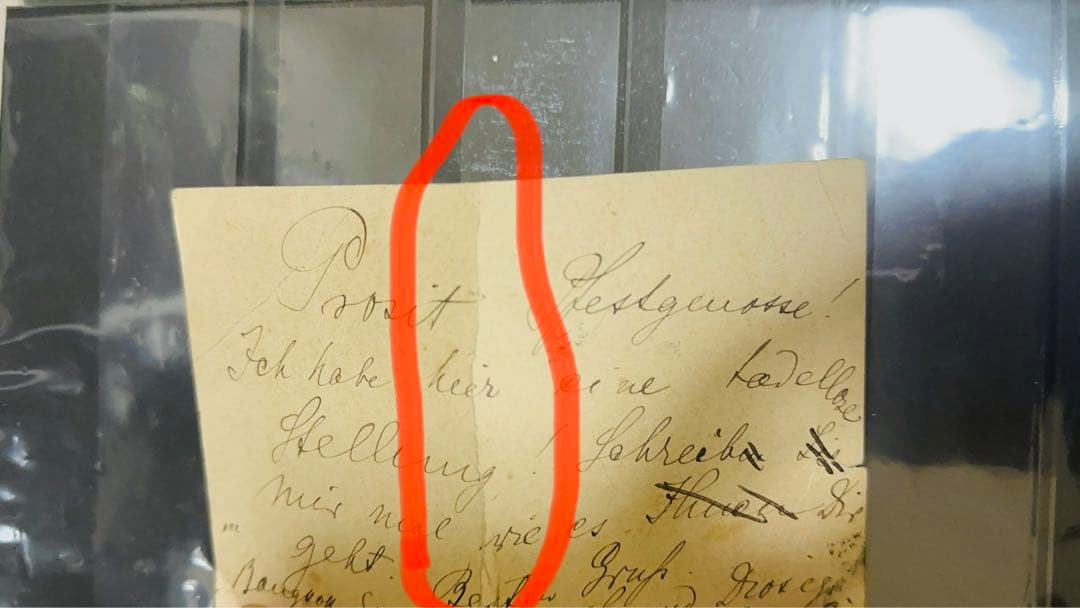 Prosit Festgenosse!
Ich habe hier eine tadellose
Stellung! Schreibe
mir mal wie es Ihnen Dir
geht.
Gruß